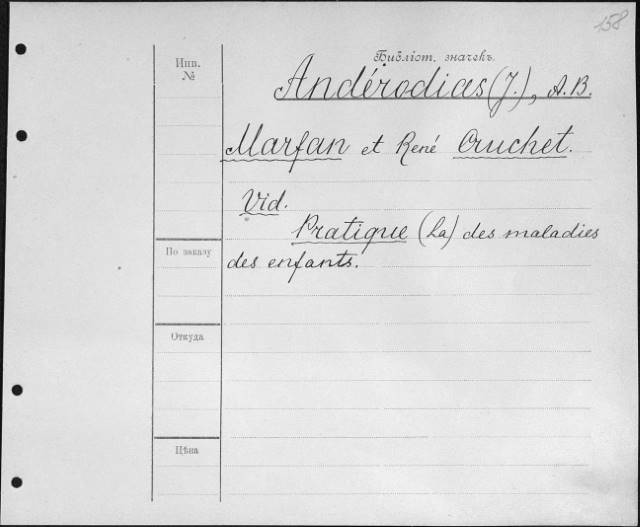 158
Инв.
№
Библіот. значекъ.
Andérodias (J.), A.B.
Marfan et René Cruchet.
Vid.
Pratique (La) des maladies
des enfants.
По заказу
Откуда
Цѣна